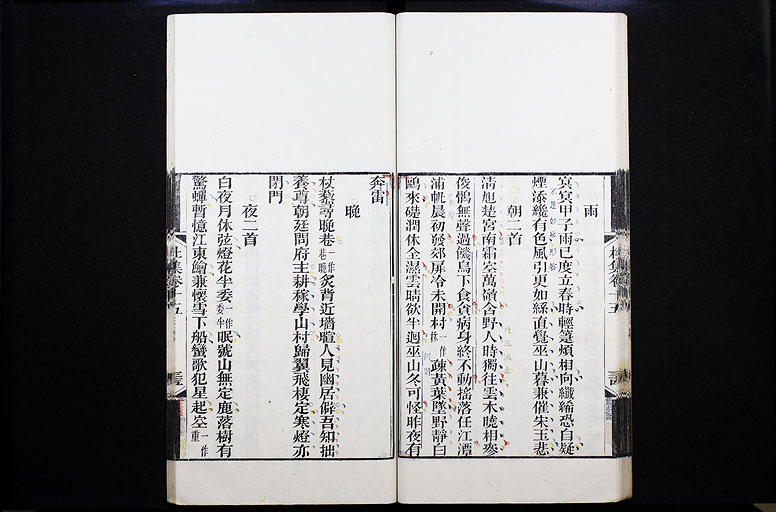 雨
冥冥甲子雨已度立春時輕箑煩相向纖絺恐自疑
煙添纔有色風引更如絲直覺巫山暮兼催宋玉悲
朝二首
清旭楚宮南霜空萬嶺含野人時獨往雲木曉相參
俊鶻無聲過饑烏下食貪病身終不動搖落任江潭
浦帆晨初發郊扉冷未開村一作林疎黃葉墜野靜白
鷗來礎潤休全濕雲晴欲半迴巫山冬可怪昨夜有
奔雷
晚
杖藜尋晚巷一作巷晚炙背近墻暄人見幽居僻吾知拙
養尊朝廷問府主耕稼學山村歸翼飛棲定寒燈亦
閉門
夜二首
白夜月休弦燈花半委一作委半眠號山無定鹿落樹有
驚蟬暫憶江東鱠兼懷雪下船蠻歌犯星起空一作重
杜集卷十五